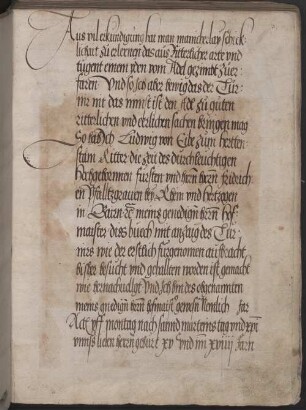 Aus vil erkundigung hat man mancherlay schick
lichait zu erlernen das aus Ritterlicher arte vnd
tugent einem yden vom Adel gezimbt zuer
faren Vnd so sich aber bewigt das der Tur
nir nit das minst ist den Adel zu guten
ritterlichen vnd erlichen sachen bringen mag
So hab Ich Ludwig von Eybe zum herten
stain Ritter die zeit des durchleuchtigen
Hochgebornnen fursten vnd hern hern fridrich
en Pfaltzgrauen bey Rein vnd hertzogen
in Bairn etc meins genedigen hern hof
maister diss buech mit anzaig des Tur
nirs wie der erstlich furgenomen aufbracht
bisher besucht vnd gehalten worden ist gemacht
wie hernachuolgt Vnd ich bin des obgenannten
meins gnedigen hern hofmaister gewesen
Act vff montag nach sannd mertens tag vnd
vnnsers lieben hern geburt xv vnd im xviiij Jarn